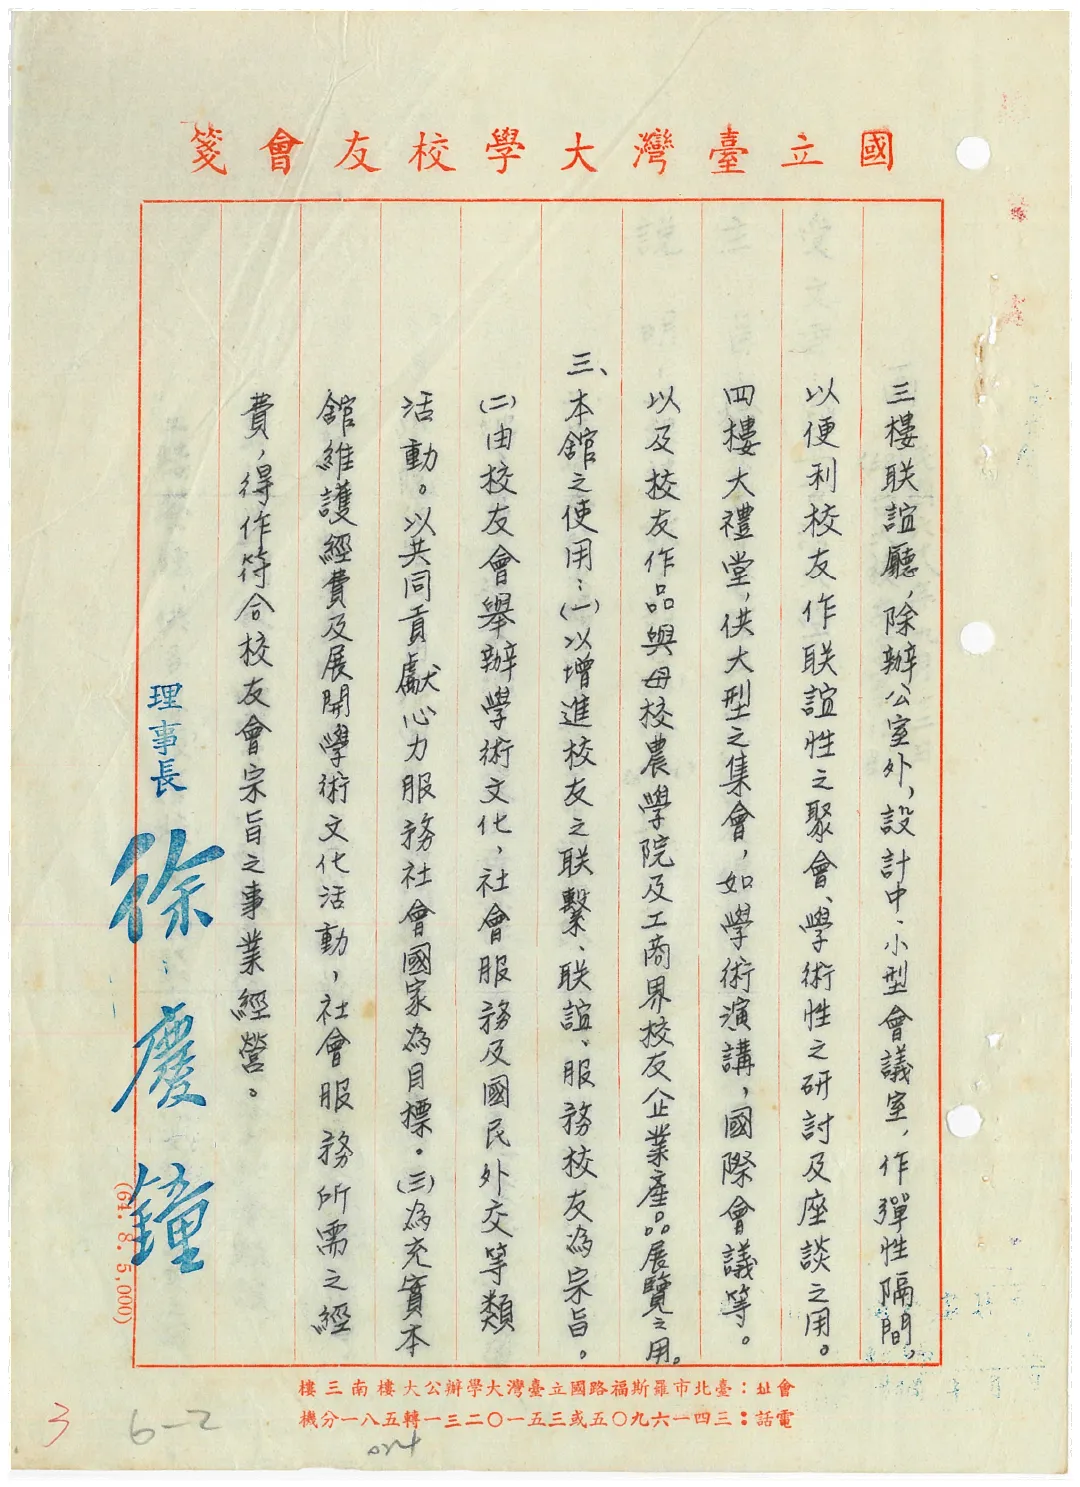 國立臺灣大學校友會箋
三樓联誼廳，除辦公室外，設計中、小型會議室，作彈性隔間，
以便利校友作联誼性之聚會、學術性之研討及座談之用。
四樓大禮堂，供大型之集會，如學術演講，國際會議等。
以及校友作品與母校農學院及工商界校友企業產品展覽之用。
三、本館之使用：(一)以增進校友之联繫、联誼、服務校友為宗旨。
(二)由校友會舉辦學術文化、社會服務及國民外交等類
活動。以共同貢獻心力服務社會國家為目標。(三)為充實本
館維護經費及展開學術文化活動，社會服務所需之經
費，得作符合校友會宗旨之事業經營。
理事長 徐慶鐘
(64.8.5,000)
會址：臺北市羅斯福路國立臺灣大學辦公大樓南三樓
電話：三四一六九〇五或三五一〇二三一轉五八一分機
3
6-2
024